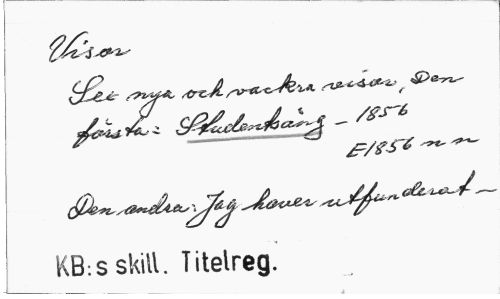 Visor
Sex nya och vackra visor, Den
första: Studentsång - 1856
E1856 n n
Den andra: Jag haver utfunderat -
KB:s skill. Titelreg.